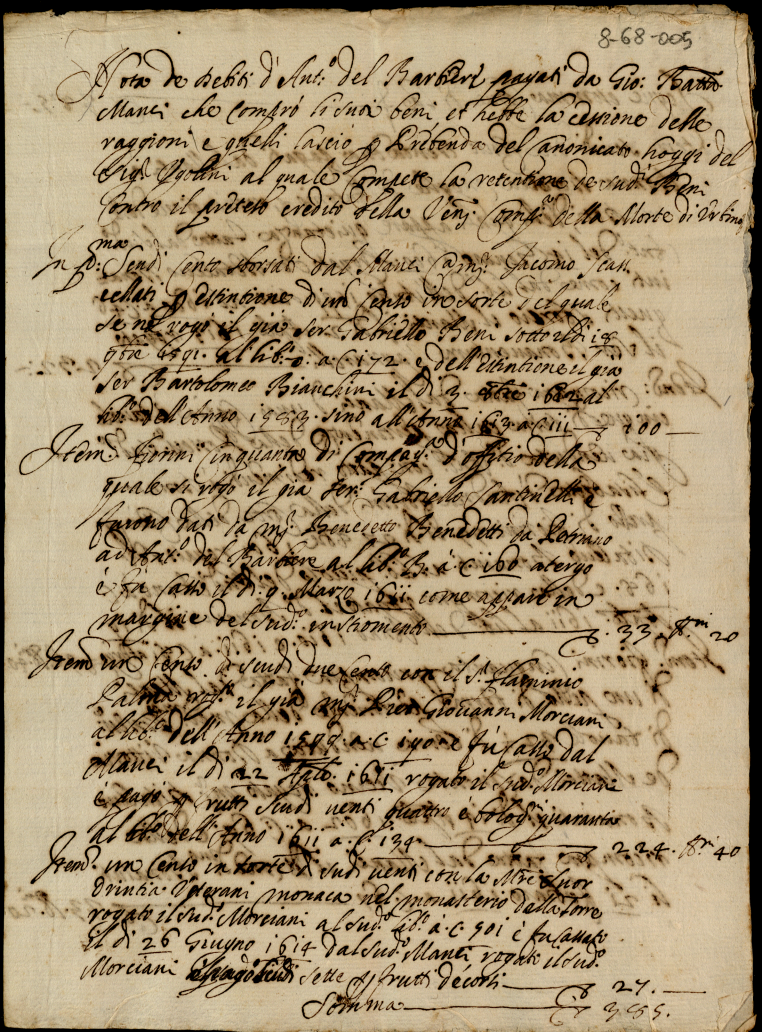 8-68-005
Nota de Debiti d'Ant.o del Barbieri pagati da Gio: Batta
Manci che comprò li suoi beni et hebbe la cessione delle
raggioni e quelli lasciò p Prebenda del Canonicato hoggi del
Sig.r Ugolini al quale compete la retentione de sud.i Beni
contro il preteso credito della Ven: Comp.a della Morte di Urbino
In p.ma Scudi cento sborsati dal Manci a m: Jacomo
p estintione d'un Cento in sorte del quale
se ne rogò il già Ser Gabriello Beni sotto il dì 18
1591. al lib.o o. a C 172. e dell'estintione il già
Ser Bartolomeo Bianchini il dì 3. 8bre 1612 al
lib.o dell'Anno 1553. sino all'Anno 1613. a C 111 — 100 —
Item Fiorini cinquanta di Compag.a d'offitio della
quale si rogò il già Ser Gabriello Santinelli e
furono dati da m: Benedetto Benedetti da Petriano
ad Ant.o del Barbiere al lib.o B. a C 160 atergo
e fu casso il dì 9. Marzo 1611 come appare in
margine del sud.o instromento — 33. 20
Item un Cento di scudi due cento con il S.r Flaminio
Palma rog.o il già m: Pier Giovanni Morciani
al lib.o dell'Anno 1599. a C 190 e fù casso dal
Manci il dì 22 1611 rogato il sud.o Morciani
e pagò p frutti scudi venti quattro e bolog.ni quaranta
al lib.o dell'Anno 1611 a C. 134 — 224. 40
Item un Cento in sorte di scudi venti con la M.re Suor
Drintia Veterani monaca nel monasterio della Torre
rogato il sud.o Morciani al sud.o lib.o a C 501 e fu cassato
il dì 26 Giugno 1614 dal sud.o Manci rogato il sud.o
Morciani e pagò scudi sette p frutti decorsi — 27. —
Somma — 385.